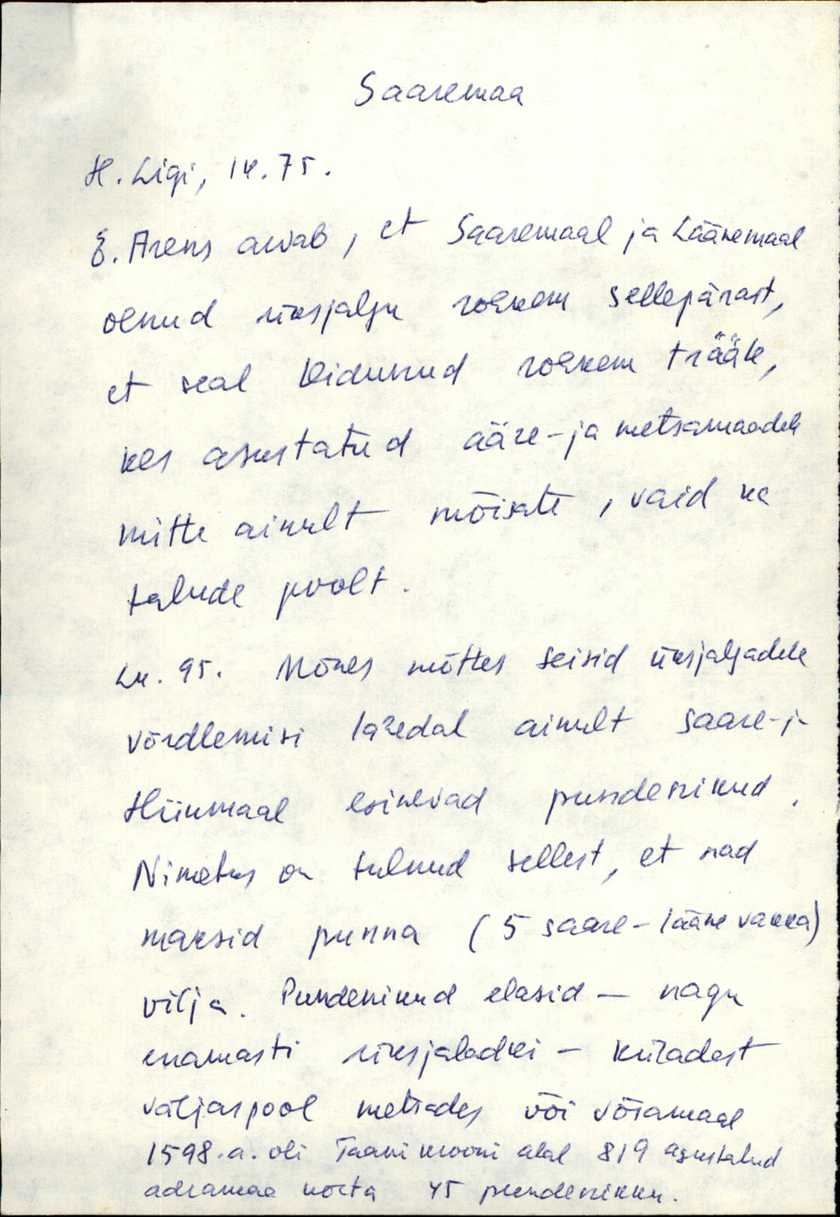 Saaremaa
H. Ligi, lk. 75.
E. Arens arvab, et Saaremaal ja Läänemaal
olnud üksjalgu rohkem sellepärast,
et seal leidunud rohkem trääle,
kes asustatud ääre- ja metsamaadele
mitte ainult mõisate, vaid ka
talude poolt.
Lk. 95. Mõnes mõttes seisid üksjalgadele
võrdlemisi lähedal ainult Saare- ja
Hiiumaal esinevad pundenikud.
Nimetus on tulnud sellest, et nad
maksid punna (5 saare-lääne vakka)
vilja. Pundenikud elasid – nagu
enamasti üksjaladki – küladest
väljaspool metsades või võsamaal
1598. a. oli Taani krooni alal 819 asustatud
adramaa kohta 45 pundenikku.